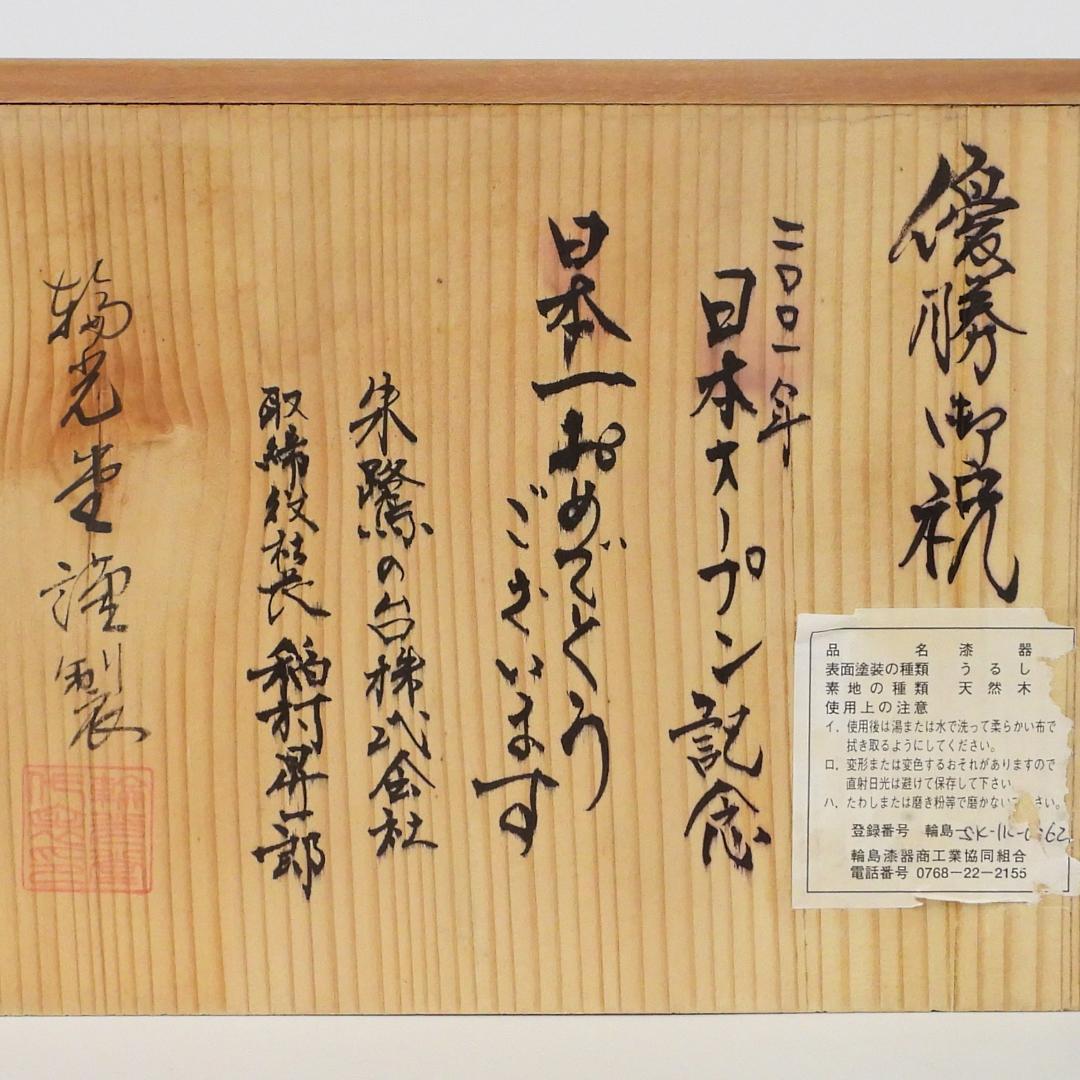 優勝御祝
二〇〇一年
日本オープン記念
日本一おめでとう
ございます
朱鷺の台株式会社
取締役社長 稲村昇一郎
輪光堂謹製
品名 漆器
表面塗装の種類 うるし
素地の種類 天然木
使用上の注意
イ．使用後は湯または水で洗って柔らかい布で
拭き取るようにしてください。
ロ．変形または変色するおそれがありますので
直射日光は避けて保存して下さい
ハ．たわしまたは磨き粉等で磨かない さい。
登録番号 輪島
輪島漆器商工業協同組合
電話番号 0768－22－2155